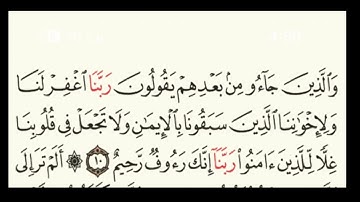 وَٱلَّذِينَ جَآءُو مِنۢ بَعْدِهِمْ يَقُولُونَ رَبَّنَا ٱغْفِرْ لَنَا
وَلِإِخْوَٰنِنَا ٱلَّذِينَ سَبَقُونَا بِٱلْإِيمَٰنِ وَلَا تَجْعَلْ فِى قُلُوبِنَا
غِلًّا لِّلَّذِينَ ءَامَنُوا۟ رَبَّنَآ إِنَّكَ رَءُوفٌ رَّحِيمٌ ١٠ ۞ أَلَمْ تَرَ إِلَى